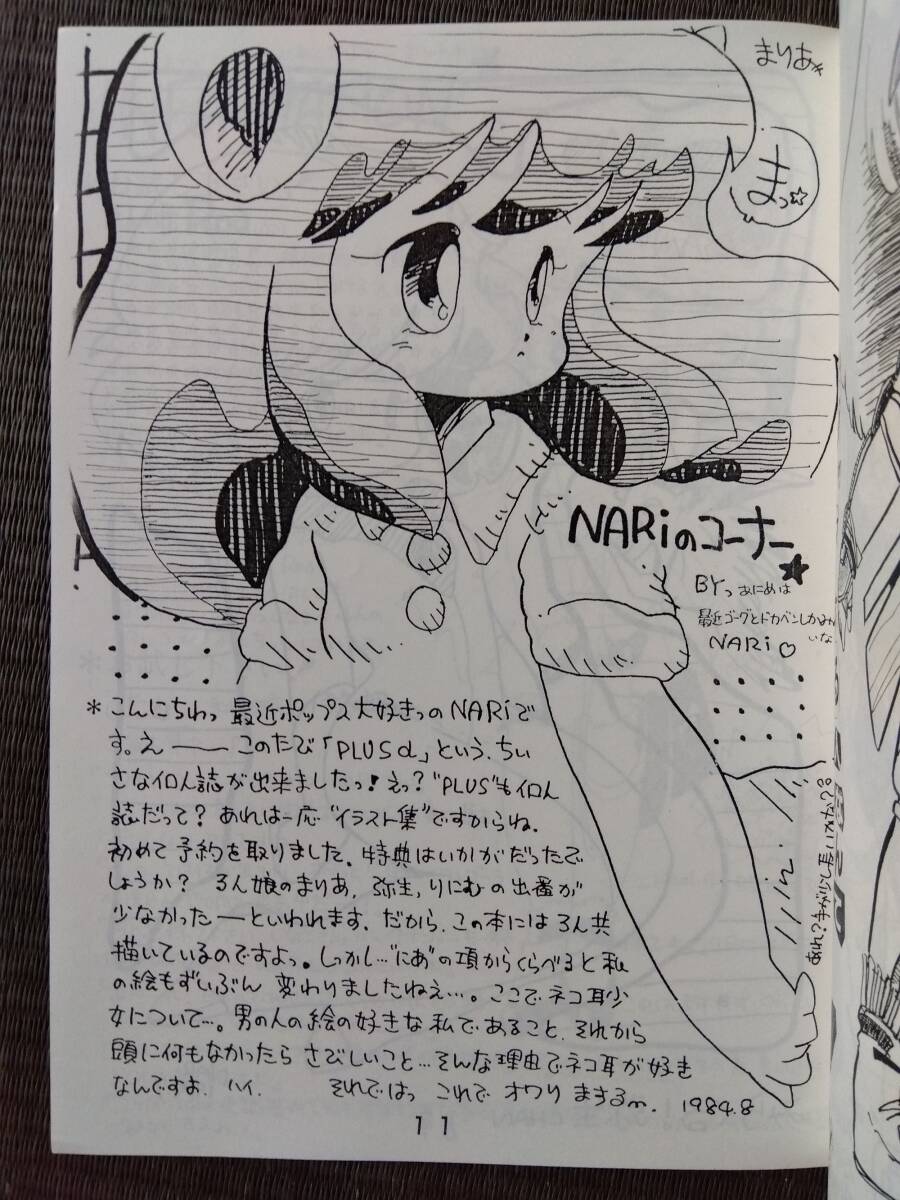 まりあ☆
まっ☆
NARiのコーナー★
BYっ あにめは
最近ゴーグとドカベンしかみて
いな
NARi♡
＊こんにちわっ 最近ポップス大好きっのNARiで
す。えーー このたび「PLUSα」という、ちい
さな同人誌が出来ましたっ！えっ？“PLUS”も同人
誌だって？あれは一応“イラスト集”ですからね。
初めて予約を取りました。特典はいかがだったで
しょうか？ 3人娘のまりあ、弥生、りにむの出番が
少なかったーといわれます。だから、この本には3人共
描いているのですよっ。しっかし…“にあ”の項からくらべると私
の絵もずいぶん 変わりましたねぇ…。ここでネコ耳少
女について…。男の人の絵の好きな私であること、それから
頭に何もなかったら さびしいこと…そんな理由でネコ耳が好き
なんですよ。ハイ。 それではっ これで オワリ まするm. 1984.8
あれ？手がぶっこい
11